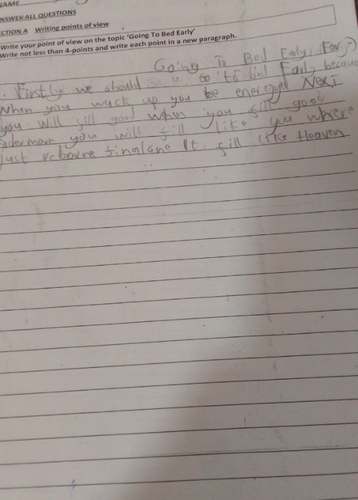 NAME
ANSWER ALL QUESTIONS
SECTION A Writing points of view
Write your point of view on the topic 'Going To Bed Early'
Write not less than 4-points and write each point in a new paragraph.
Going To Bed Early (For)
Firstly we should go to bed Early because
when you wack up you be energy Next
you will fill good when you fill good
you will fill like you where
Just reborne finalane It fill like Heaven